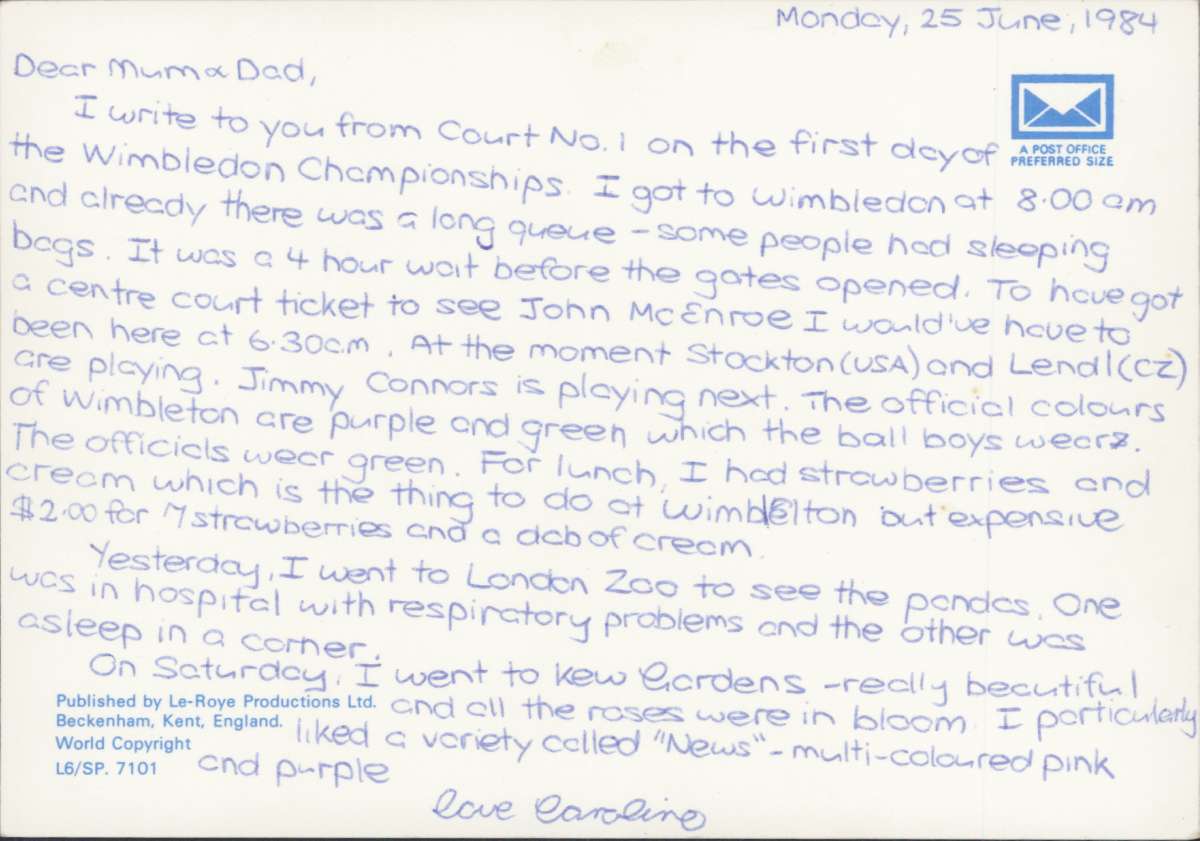 Monday, 25 June, 1984
Dear Mum & Dad,
I write to you from Court No. 1 on the first day of
A POST OFFICE
PREFERRED SIZE
the Wimbledon Championships. I got to Wimbledon at 8.00 am
and already there was a long queue - some people had sleeping
bags. It was a 4 hour wait before the gates opened. To have got
a centre court ticket to see John McEnroe I would've have to
been here at 6.30am. At the moment Stockton (USA) and Lendl (CZ)
are playing. Jimmy Connors is playing next. The official colours
of Wimbleton are purple and green which the ball boys wear.
The officials wear green. For lunch, I had strawberries and
cream which is the thing to do at Wimbleton but expensive
$2.00 for 7 strawberries and a dab of cream.
Yesterday, I went to London Zoo to see the pandas. One
was in hospital with respiratory problems and the other was
asleep in a corner.
On Saturday, I went to Kew Gardens - really beautiful
and all the roses were in bloom. I particularly
liked a variety called "News" - multi-coloured pink
and purple
love Caroline
Published by Le-Roye Productions Ltd.
Beckenham, Kent, England.
World Copyright
L6/SP. 7101